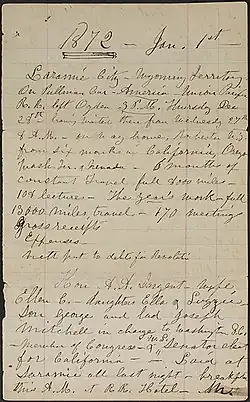 1872 - Jan. 1st -
Laramie City - Wyoming Territory
On Pullman Car - America - Union Pacific
R. R. left Ogden - 3 P.M. Thursday Dec
28th having waited there from Wednesday 27th
8 A.M. - on way home, Rochester N.Y.
from six months in California, Oreg
Wash. Ter. & Nevada - 6 months of
constant travel full 8000 miles -
108 lectures - The year's work - full
13,000 miles travel - 170 meetings
Gross receipts
Expenses -
nett put to debt for Revolution
Hon A. A. Sargent - wife
Ellen C. - daughters Ella & Lizzie
Son George and lad Joseph
Mitchell in charge to Washington D.C.
- member of Congress - & U.S. Senator elect
for California - Laid at
Laramie all last night - breakfast
this A.M. at R. R. Hotel -